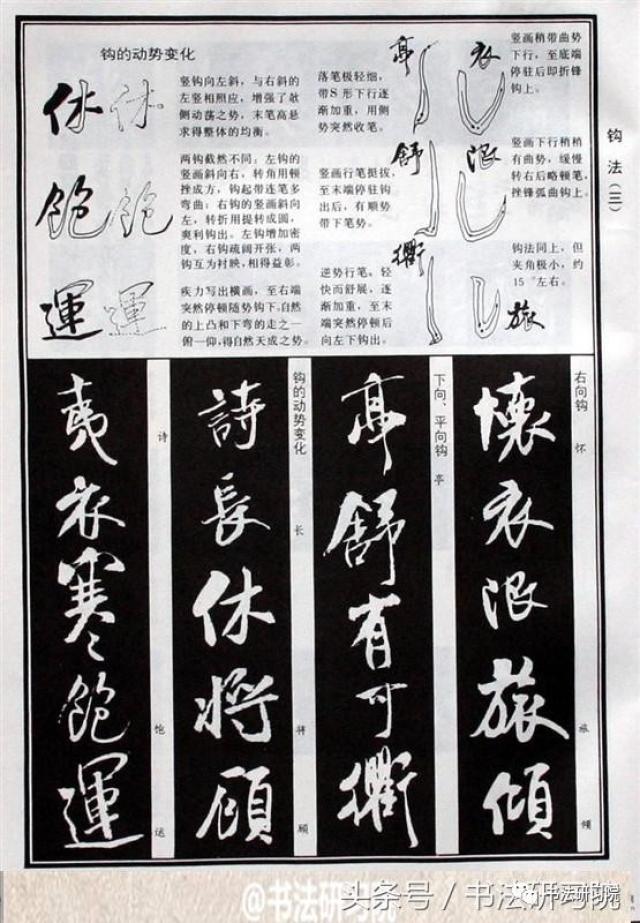 钩法(三)
钩的动势变化
休 休
竖钩向左斜，与右斜的
左竖相照应，增强了欹
侧动荡之势，末笔高悬
求得整体的均衡。
飽 飽
两钩截然不同：左钩的
竖画斜向右，转角用顿
挫成方，钩起带连笔多
弯曲；右钩的竖画斜向
左，转折用提转成圆，
爽利钩出。左钩增加密
度，右钩疏阔开张，两
钩互为衬映，相得益彰。
運 運
疾力写出横画，至右端
突然停顿随势钩下。自然
的上凸和下弯的走之一
俯一仰，得自然天成之势。
落笔极轻细，
带S形下行逐
渐加重，用侧
势突然收笔。
亭
竖画行笔挺拔，
至末端停驻钩
出后，有顺势
带下笔势。
舒
逆势行笔，轻
快而舒展，逐
渐加重，至末
端突然停顿后
向左下钩出。
衢
衣
竖画稍带曲势
下行，至底端
停驻后即折锋
钩上。
泯
竖画下行稍稍
有曲势，缓慢
转右后略顿笔，
挫锋弧曲钩上。
旅
钩法同上，但
夹角极小，约
15°左右。
右向钩 怀 旅 倾
懷衣泯旅傾
下向、平向钩 亭
亭舒有可衢
钩的动势变化 长 将 顾
詩長休将顧
诗 饱 运
夷衣寒飽運
@书法研习院
头条号／书法研习院